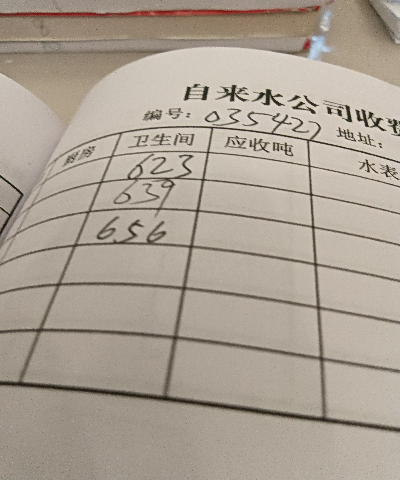 自来水公司收费
编号: 035427 地址:
厨房 卫生间 应收吨 水表
623
639
656